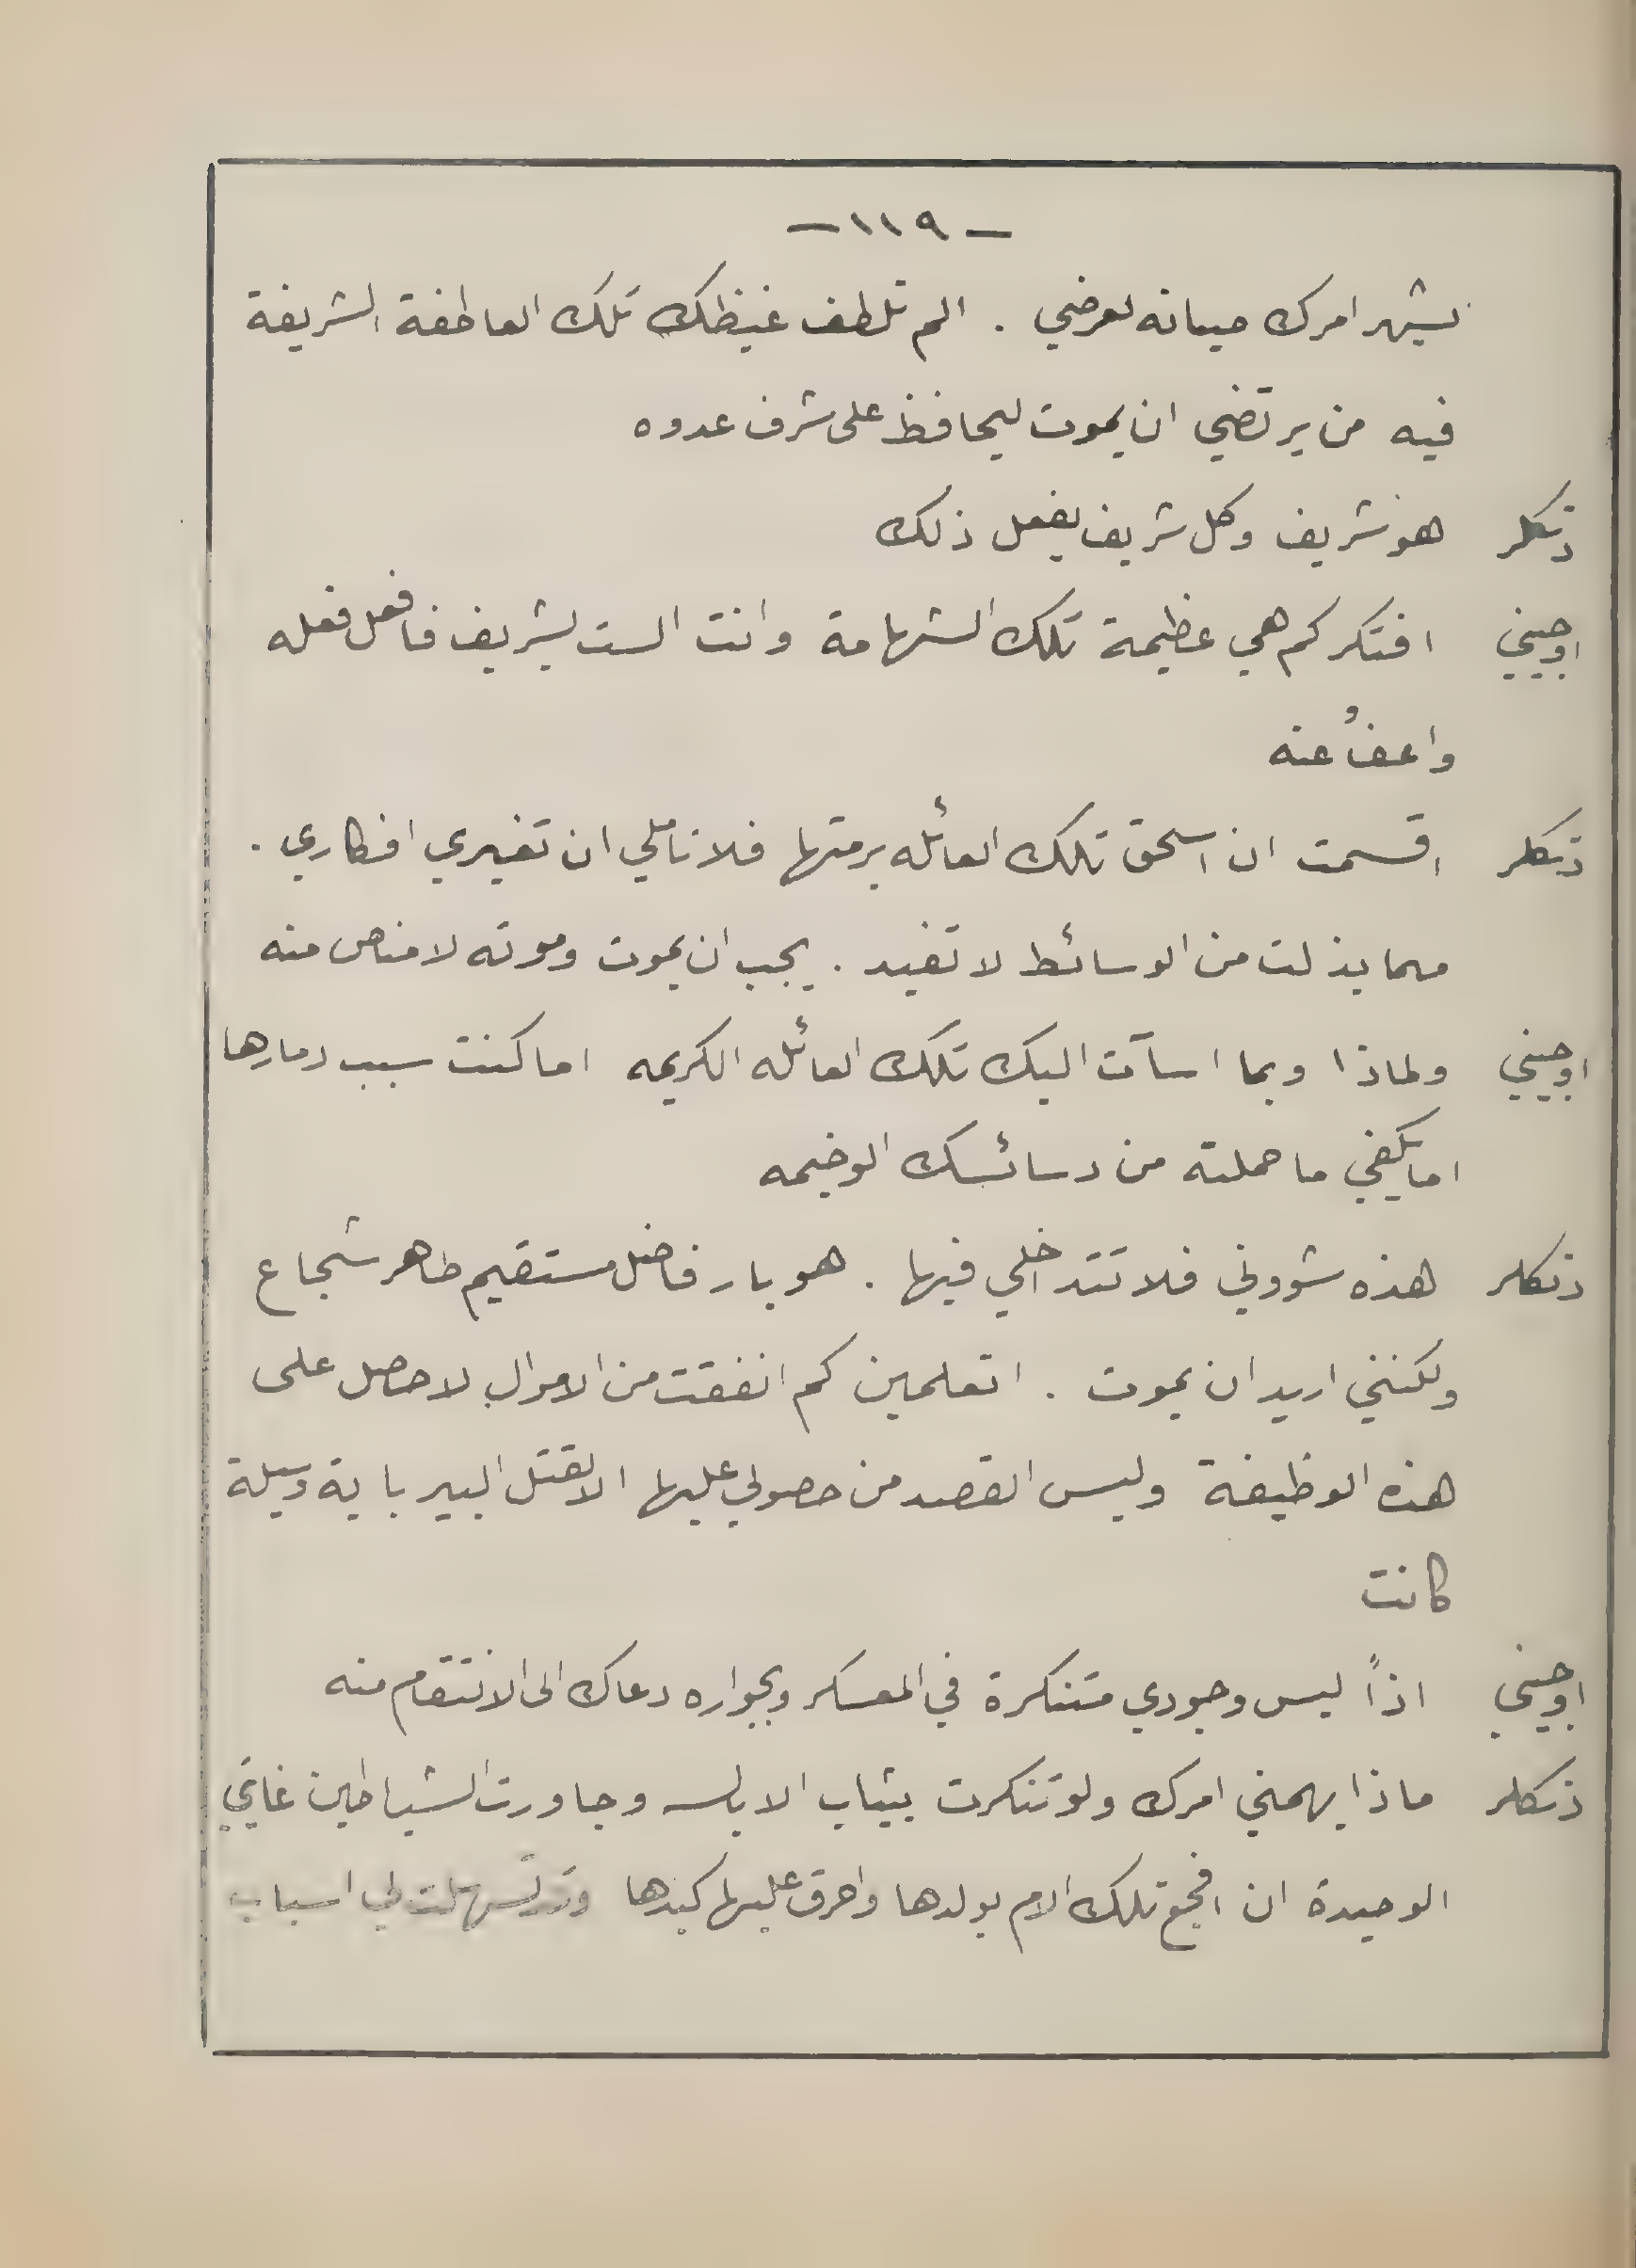 — ١١٩ —
لشهر امرك صيانه لعرضي . الم تلطف غيظك تلك العاطفة الشريفة
فيه من يرتضي ان يموت ليحافظ على شرف عدوه
دنكلر هو شريف وكل شريف يفعل ذلك
اوجيني افتكر كم هي عظيمة تلك الشهامة وانت الست بشريف فافعل فعله
واعفُ عنه
دنكلر اقسمت ان اسحق تلك العائله برمتها فلا تاملي ان تغيري افكاري .
مهما بذلت من الوسائط لا تفيد . يجب ان يموت وموته لا مناص منه
اوجيني ولماذا وبما اسآت اليك تلك العائله الكريمه اما كنت سبب دمارها
اما يكفي ما حملته من دسائسك الوخيمه
دنكلر هذه شووني فلا تتداخلي فيها . هو بار فاضل مستقيم طاهر شجاع
ولكنني اريد ان يموت . اتعلمين كم انفقت من الاموال لاحصل على
هذه الوظيفة وليس القصد من حصولي عليها الا لقتل البير باية وسيلة
كانت
اوجيني اذاً ليس وجودي متنكرة في المعسكر وبجواره دعاك الى الانتقام منه
دنكلر ماذا يهمني امرك ولو تنكرت بثياب الابالسه وجاورت الشياطين غايتي
الوحيدة ان افجع تلك الام بولدها واحرق عليها كبدها وقد تسهلت لي اسباب